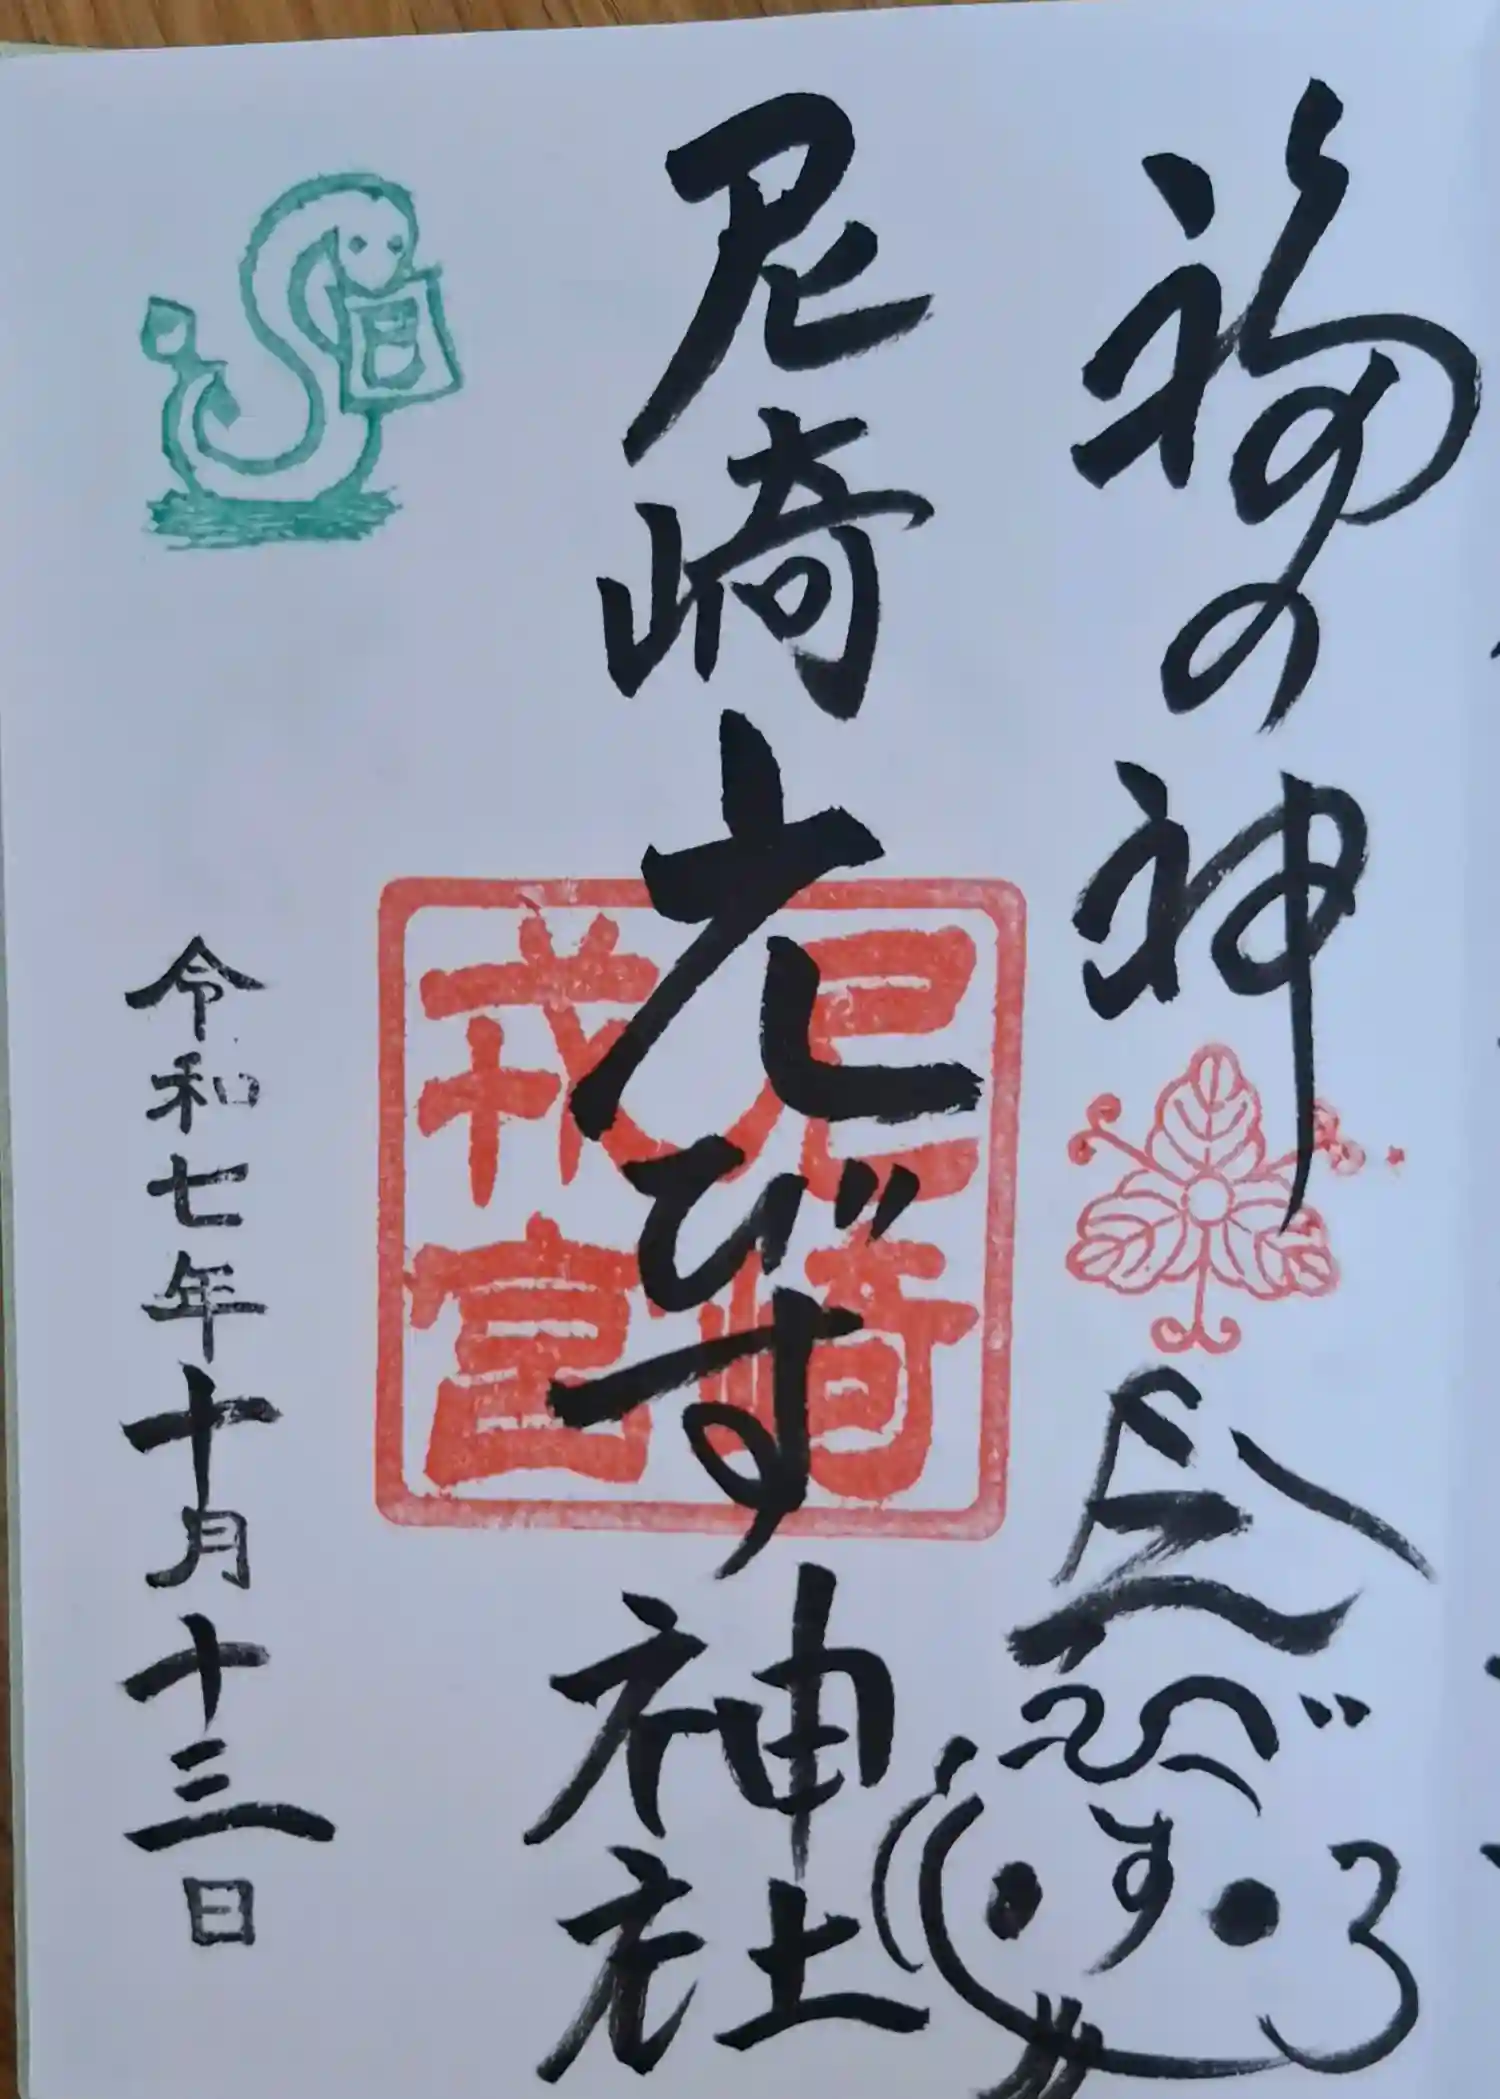 福の神
えびす
尼崎えびす神社
尼崎
戎宮
令和七年十月十三日
巳